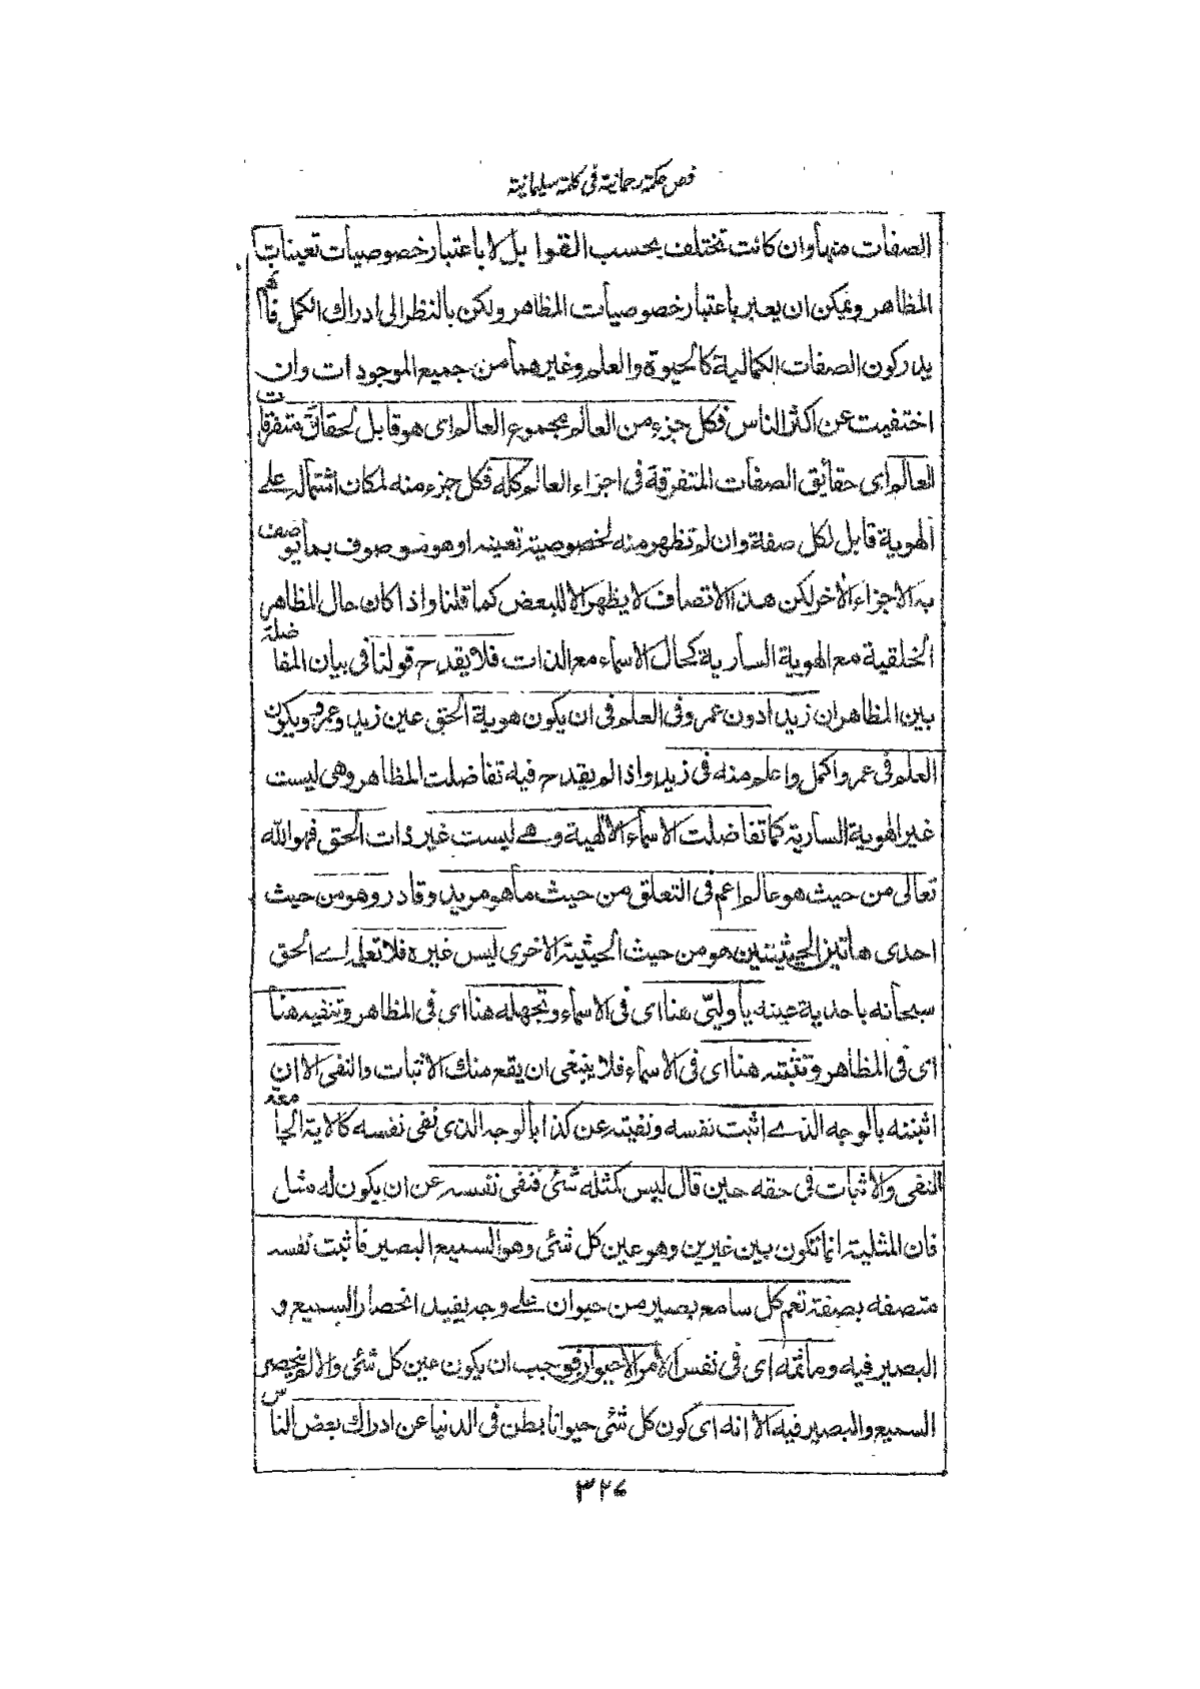 فص حكمة رحمانية فى كلمة سليمانية
الصفات منها وان كانت تختلف بحسب القوابل لا باعتبار خصوصيات تعينات
المظاهر ويمكن ان يعبر باعتبار خصوصيات المظاهر ولكن بالنظر الى ادراك الكمل فانهم
يدركون الصفات الكمالية كالحيوة والعلم وغيرهما من جميع الموجودات وان
اختفيت عن اكثر الناس فكل جزء من العالم مجموع العالم اى هو قابل لحقائق متفرقات
العالم اى حقائق الصفات المتفرقة فى اجزاء العالم كله فكل جزء منه لمكان اشتماله على
الهوية قابل لكل صفة وان لم تظهر منه لخصوصية تعينه او هو موصوف بما يوصف
به الاجزاء الاخر لكن هذا الاتصاف لا يظهر الا للبعض كما قلنا واذا كان حال المظاهر
الخلقية مع الهوية السارية كحال الاسماء مع الذات فلا يقدح قولنا فى بيان المفاضلة
بين المظاهر ان زيدا دون عمرو فى العلم فى ان يكون هوية الحق عين زيد وعمرو ويكون
العلم فى عمرو اكمل واعلم منه فى زيد واذا لم يقدح فيه تفاضلت المظاهر وهى ليست
غير الهوية السارية كما تفاضلت الاسماء الالهية وهے ليست غير ذات الحق فهو الله
تعالى من حيث هو عالم اعم فى التعلق من حيث ما هو مريد وقادر وهو من حيث
احدى هاتين الحيثيتين هو من حيث الحيثية الاخرى ليس غيره فلا تعلم اے الحق
سبحانه باحدية عينه يا وليّى هنا اى فى الاسماء وتجهله هنا اى فى المظاهر وتنفيه هنا
اى فى المظاهر وتثبته هنا اى فى الاسماء فلا ينبغى ان يقع منك الاثبات والنفى الا ان
اثبتته بالوجه الذے اثبت نفسه ونفيته عن كذا بالوجه الذى نفى نفسه كالاية الجامعة
النفى والاثبات فى حقه حين قال ليس كمثله شئى فنفى نفسه عن ان يكون له مثل
فان المثلية انما تكون بين غيرين وهو عين كل شئى وهو السميع البصير فاثبت نفسه
متصفه بصفة تعم كل سامع بصير من حيوان علے وجه يفيد انحصار السميع و
البصير فيه وما ثمه اى فى نفس الامر الا حيوان فوجب ان يكون عين كل شئى والا لم ينحصر
السميع والبصير فيه الا انه اى كون كل شئى حيوانا بطن فى الدنيا عن ادراك بعض الناس
٣٢٧